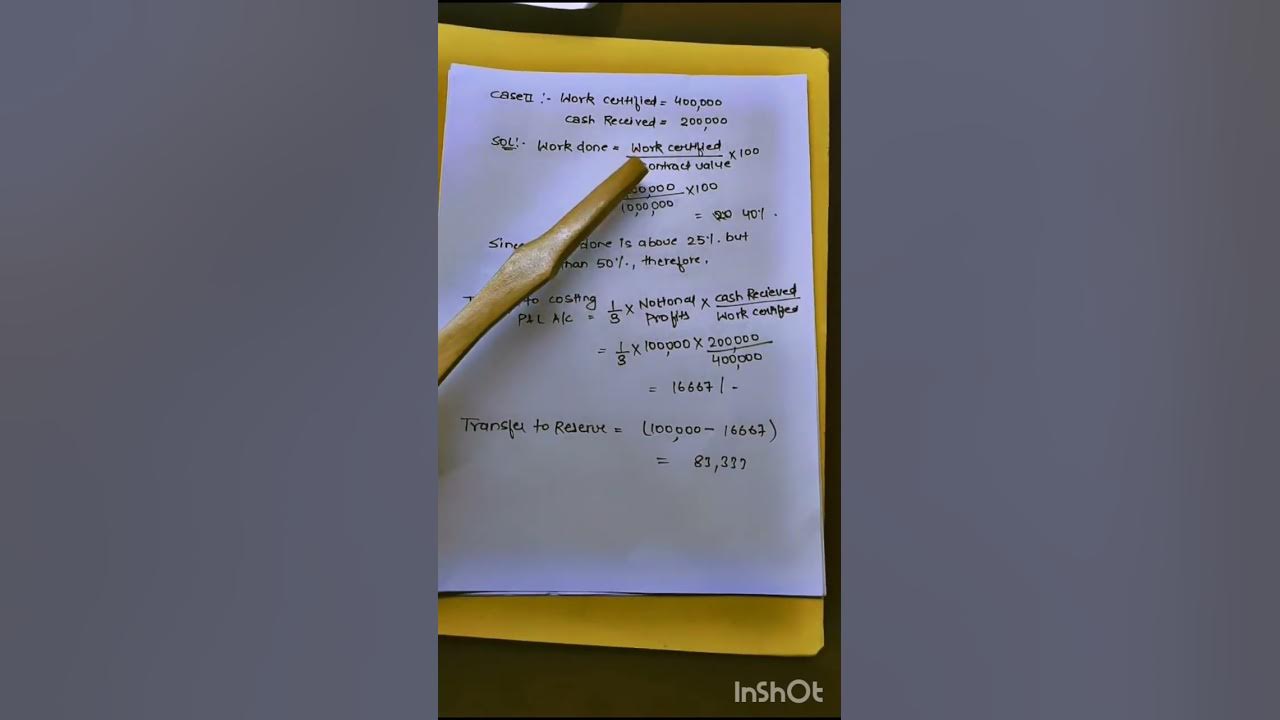 Case II :- Work certified = 400,000
Cash Received = 200,000
SOL:- Work done = Work certified × 100
contract value
00,000 × 100
1000,000
= 40%.
Since done is above 25%. but
than 50%., therefore.
to costing
P&L A/c = 1/3 × Notional Profits × Cash Recieved
Work certified
= 1/3 × 100,000 × 200,000
400,000
= 16667/-
Transfer to Reserve = (100,000 - 16667)
= 83,333
InShOt